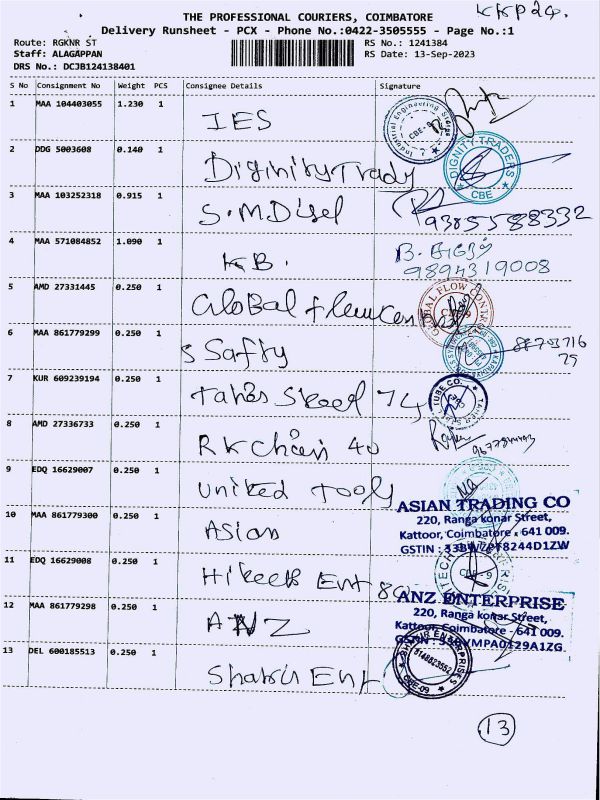 THE PROFESSIONAL COURIERS, COIMBATORE
KKP24.
Delivery Runsheet - PCX - Phone No.:0422-3505555 - Page No.:1
Route: RGKNR ST
RS No.: 1241384
Staff: ALAGAPPAN
RS Date: 13-Sep-2023
DRS No.: DCJB124138401
S No Consignment No Weight PCS Consignee Details Signature
1 MAA 104403055 1.230 1 IES
Industrial Engineering CBE-9
2 DDG 5003608 0.140 1 Diginity Trady
DIGNITY TRADERS CBE
3 MAA 103252318 0.915 1 S.M Disel
9385588332
4 MAA 571084852 1.090 1 KB.
9894319008
5 AMD 27331445 0.250 1 Global flow
GLOBAL FLOW CONTROL CBE-9
6 MAA 861779299 0.250 1 S Safty
7 KUR 609239194 0.250 1
TUBE CO.
8 AMD 27336733 0.250 1 RK Chain 40
9 EDQ 16629007 0.250 1 United Tooly
10 MAA 861779300 0.250 1 Asian
ASIAN TRADING CO
220, Ranga konar Street,
Kattoor, Coimbatore - 641 009.
GSTIN :
11 EDQ 16629008 0.250 1
CBE-9
12 MAA 861779298 0.250 1 ANZ
ANZ ENTERPRISE
220, Ranga konar Street,
Kattoor, Coimbatore - 641 009.
13 DEL 600185513 0.250 1 Shabir Ent
SHABIR ENTERPRISES CBE-09
13